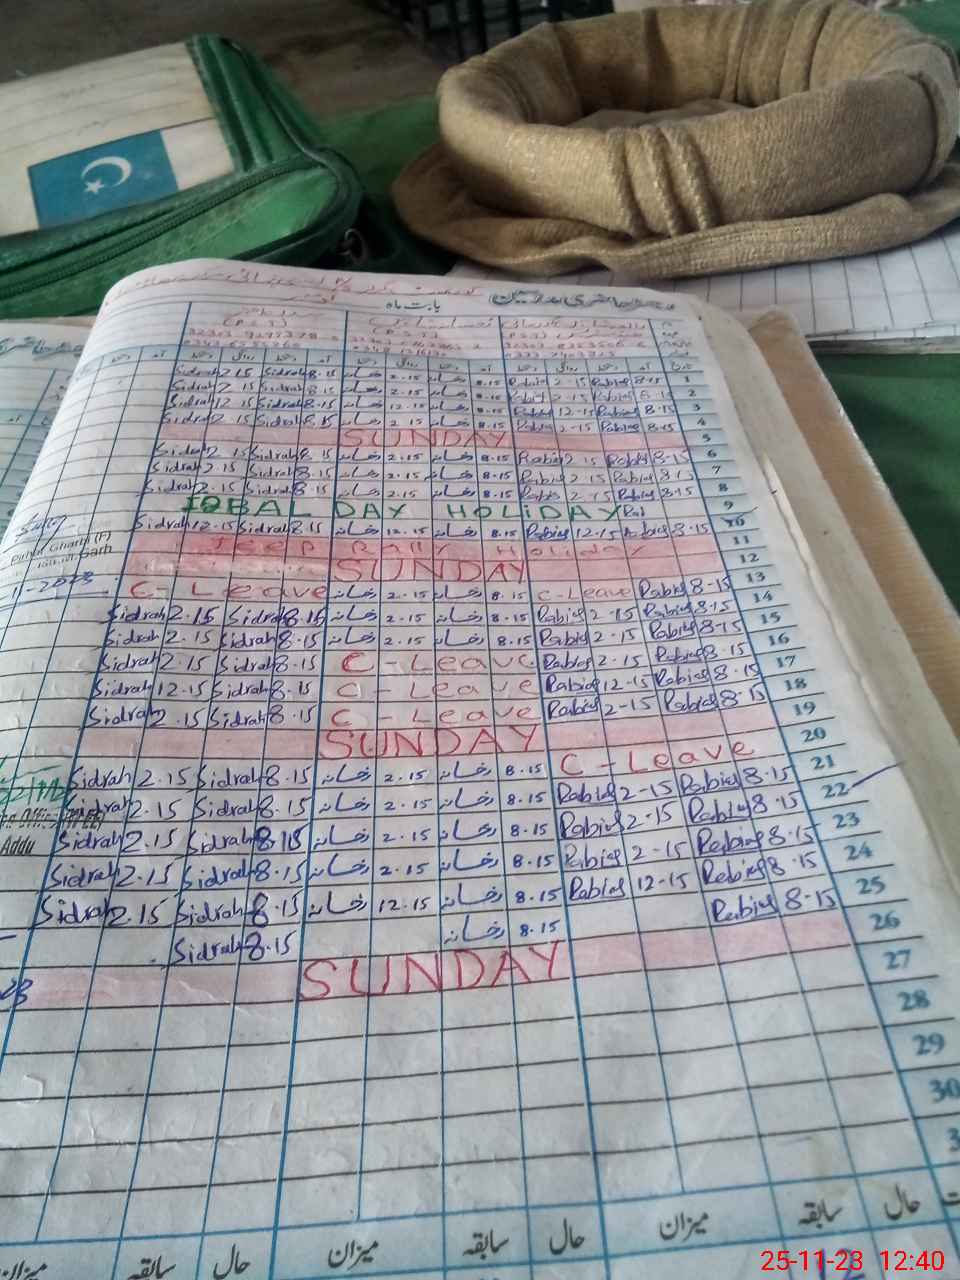 رجسٹر حاضری مدرسین
بابت ماہ
تاریخ آمد دستخط روانگی دستخط آمد دستخط روانگی دستخط آمد دستخط روانگی دستخط آمد
Sidrah 2.15 Sidrah 8.15 رخسانہ 2.15 رخسانہ 8.15 Rabia 2-15 Rabia 8-15 1
Sidrah 2.15 Sidrah 8.15 رخسانہ 2.15 رخسانہ 8.15 Rabia 2-15 Rabia 8-15 2
Sidrah 12.15 Sidrah 8.15 رخسانہ 12.15 رخسانہ 8.15 Rabia 12-15 Rabia 8-15 3
Sidrah 2.15 Sidrah 8.15 رخسانہ 2.15 رخسانہ 8.15 Rabia 2-15 Rabia 8-15 4
SUNDAY 5
Sidrah 2.15 Sidrah 8.15 رخسانہ 2.15 رخسانہ 8.15 Rabia 2-15 Rabia 8-15 6
Sidrah 2.15 Sidrah 8.15 رخسانہ 2.15 رخسانہ 8.15 Rabia 2-15 Rabia 8-15 7
Sidrah 2.15 Sidrah 8.15 رخسانہ 2.15 رخسانہ 8.15 Rabia 2-15 Rabia 8-15 8
IQBAL DAY HOLIDAY Rab 9
Sidrah 12.15 Sidrah 8.15 رخسانہ 12.15 رخسانہ 8.15 Rabia 12-15 Rabia 8-15 10
Jeep Rally Holiday 11
SUNDAY 12
C-Leave رخسانہ 2.15 رخسانہ 8.15 C-Leave Rabia 8-15 13
Sidrah 2.15 Sidrah 8.15 رخسانہ 2.15 رخسانہ 8.15 Rabia 2-15 Rabia 8-15 14
Sidrah 2.15 Sidrah 8.15 رخسانہ 2.15 رخسانہ 8.15 Rabia 2-15 Rabia 8-15 15
Sidrah 2.15 Sidrah 8.15 C-Leave Rabia 2-15 Rabia 8-15 16
Sidrah 12.15 Sidrah 8.15 C-Leave Rabia 12-15 Rabia 8-15 17
Sidrah 2.15 Sidrah 8.15 C-Leave Rabia 2-15 Rabia 8-15 18
SUNDAY 19
Sidrah 2.15 Sidrah 8.15 رخسانہ 2.15 رخسانہ 8.15 C-Leave 20
Sidrah 2.15 Sidrah 8.15 رخسانہ 2.15 رخسانہ 8.15 Rabia 2-15 Rabia 8-15 21
Sidrah 2.15 Sidrah 8.15 رخسانہ 2.15 رخسانہ 8.15 Rabia 2-15 Rabia 8-15 22
Sidrah 2.15 Sidrah 8.15 رخسانہ 2.15 رخسانہ 8.15 Rabia 2-15 Rabia 8-15 23
Sidrah 2.15 Sidrah 8.15 رخسانہ 12.15 رخسانہ 8.15 Rabia 12-15 Rabia 8-15 24
Sidrah 8.15 رخسانہ 8.15 Rabia 8-15 25
SUNDAY 26
27
28
29
30
حال سابقہ میزان حال سابقہ میزان حال سابقہ میزان
25-11-23 12:40